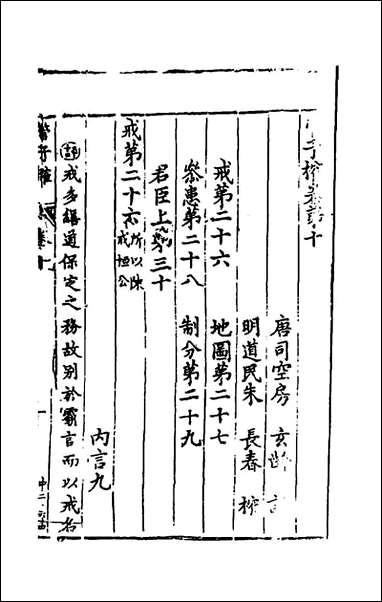 管子榷卷第十
唐司空房 玄齡 註
明道民朱 長春 榷
戒第二十六 地圖第二十七
參患第二十八 制分第二十九
君臣上第三十
戒第二十六 所以陳戒桓公
內言九
評戒多緒通保定之務故別於霸言而以戒名
管子榷